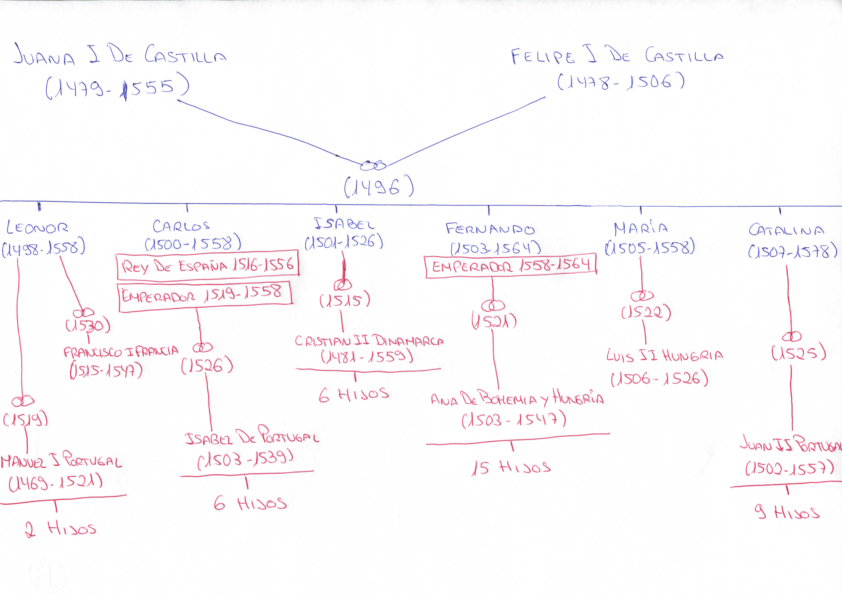 JUANA I DE CASTILLA
(1479-1555)
FELIPE I DE CASTILLA
(1478-1506)
(1496)
LEONOR
(1498-1558)
CARLOS
(1500-1558)
REY DE ESPAÑA 1516-1556
EMPERADOR 1519-1558
ISABEL
(1501-1526)
FERNANDO
(1503-1564)
EMPERADOR 1558-1564
MARÍA
(1505-1558)
CATALINA
(1507-1578)
(1530)
FRANCISCO I FRANCIA
(1515-1547)
(1519)
MANUEL I PORTUGAL
(1469-1521)
2 HIJOS
(1526)
ISABEL DE PORTUGAL
(1503-1539)
6 HIJOS
(1515)
CRISTIAN II DINAMARCA
(1481-1559)
6 HIJOS
(1521)
ANA DE BOHEMIA Y HUNGRÍA
(1503-1547)
15 HIJOS
(1522)
LUIS II HUNGRIA
(1506-1526)
(1525)
JUAN II PORTUGAL
(1502-1557)
9 HIJOS